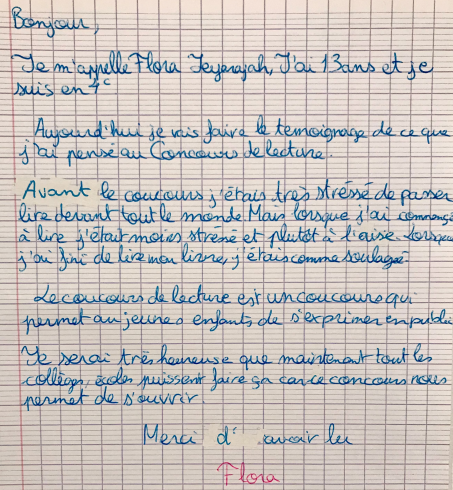 Bonjour,
Je m'appelle Flora Jeyerajah, J'ai 13ans et je
suis en 4e
Aujourd'hui je vais faire le temoignage de ce que
j'ai pensé au Concours de lecture.
Avant le coucours j'étais très stréssé de passer
lire devant tout le monde. Mais lorsque j'ai commencé
à lire j'était moins stréssé et plutôt à l'aise. Lorsque
j'ai fini de lire mon livre, j'étais comme soulagé
Le coucours de lecture est un coucours qui
permet au jeunes enfants de s'exprimer en public
Je serai très heureuse que maintenant tout les
collèges, écoles puissent faire ça car ce concours nous
permet de s'ouvrir.
Merci d'avoir lu
Flora